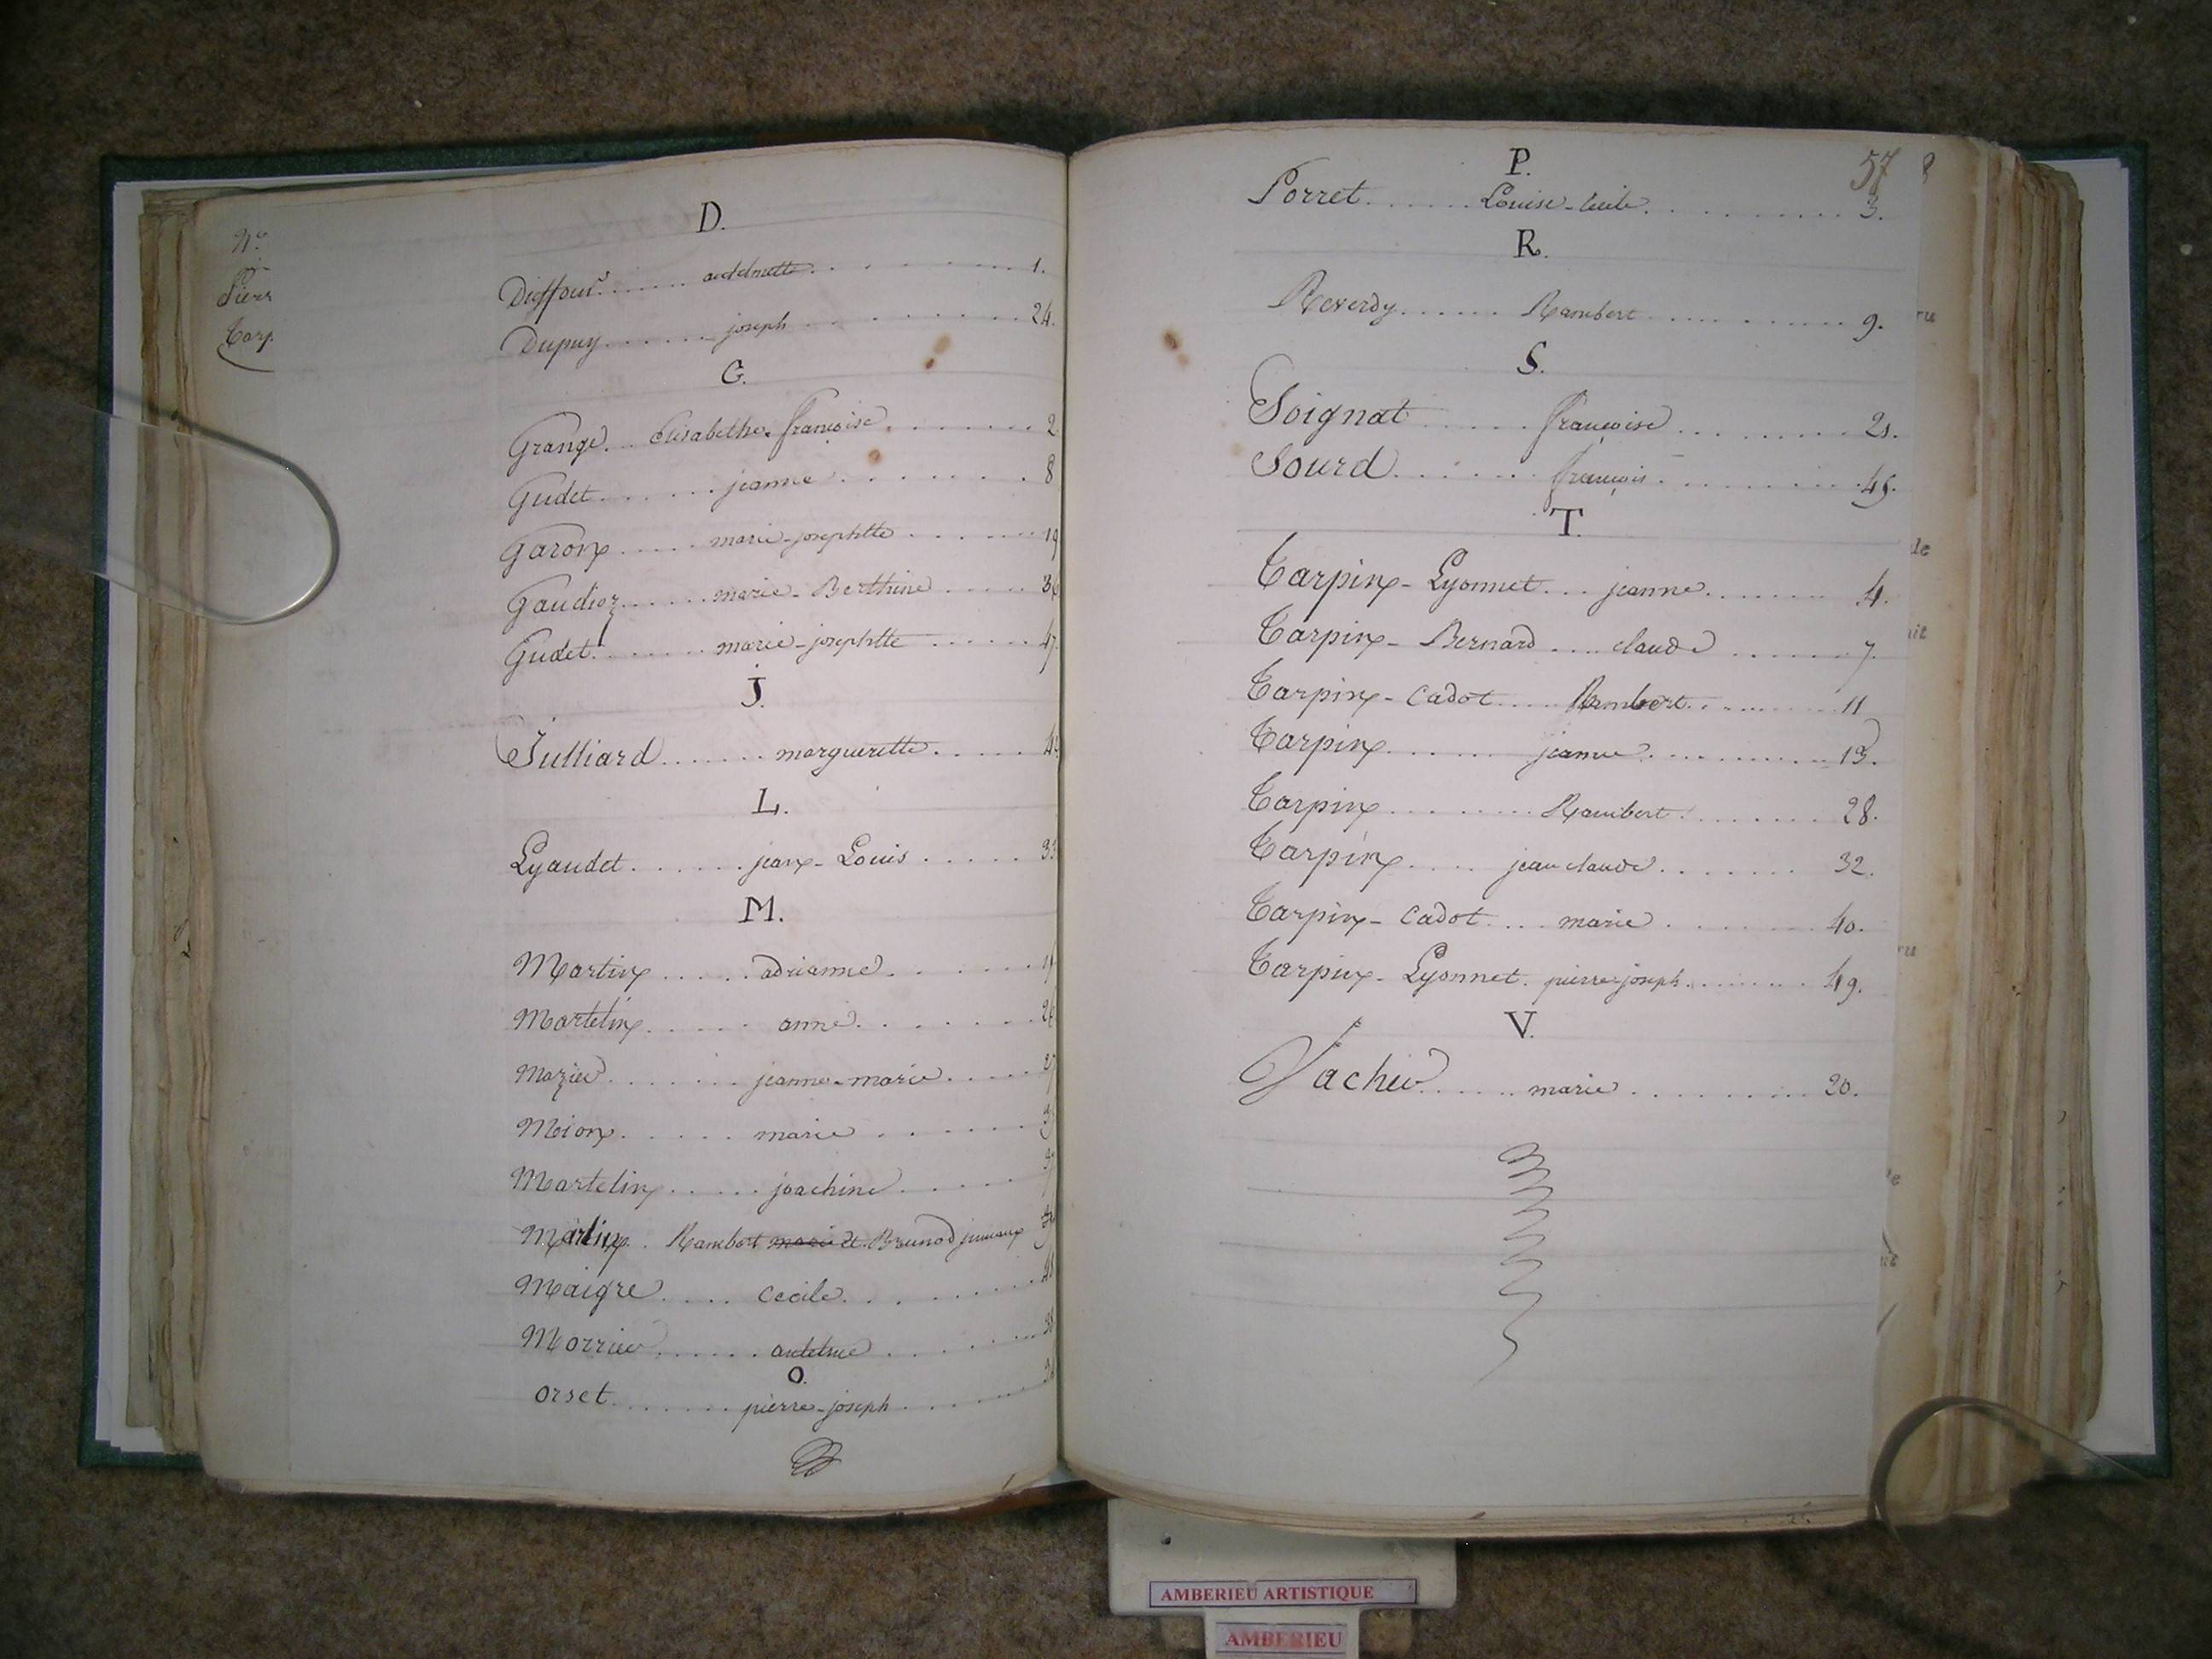 N°
Pierr
Carp
D.
Dieffous 1.
Dupuy joseph 24.
G.
Grange Elisabethe françoise 2
Gudet jeanne 8
Garon marie-josephtte 19
Gaudioz marie-Berthine 36
Gudet marie-josephtte 47
J.
Julliard marguerette
L.
Lyaudet jean-Louis 33
M.
Martin adrianne
Martelin anne
Mazier jeanne-marie
Moion marie
Martelin joachine
Martin Rambert marie et Brunod jumeaux
Maigre cecile
Morrier antelme
O.
orset pierre-joseph
57
P.
Porret Louise-Cecile 3.
R.
Reverdy Rambert 9.
S.
Soignat françoise 21.
Sourd françois 45.
T.
Tarpin-Lyonnet jeanne 4.
Tarpin-Bernard claude 7.
Tarpin-cadot Rambert 11
Tarpin jeanne 13.
Tarpin Rambert 28.
Tarpin jean claude 32.
Tarpin-cadot marie 40.
Tarpin-Lyonnet pierre joseph 49.
V.
Vacher marie 20.
AMBERIEU ARTISTIQUE
AMBERIEU